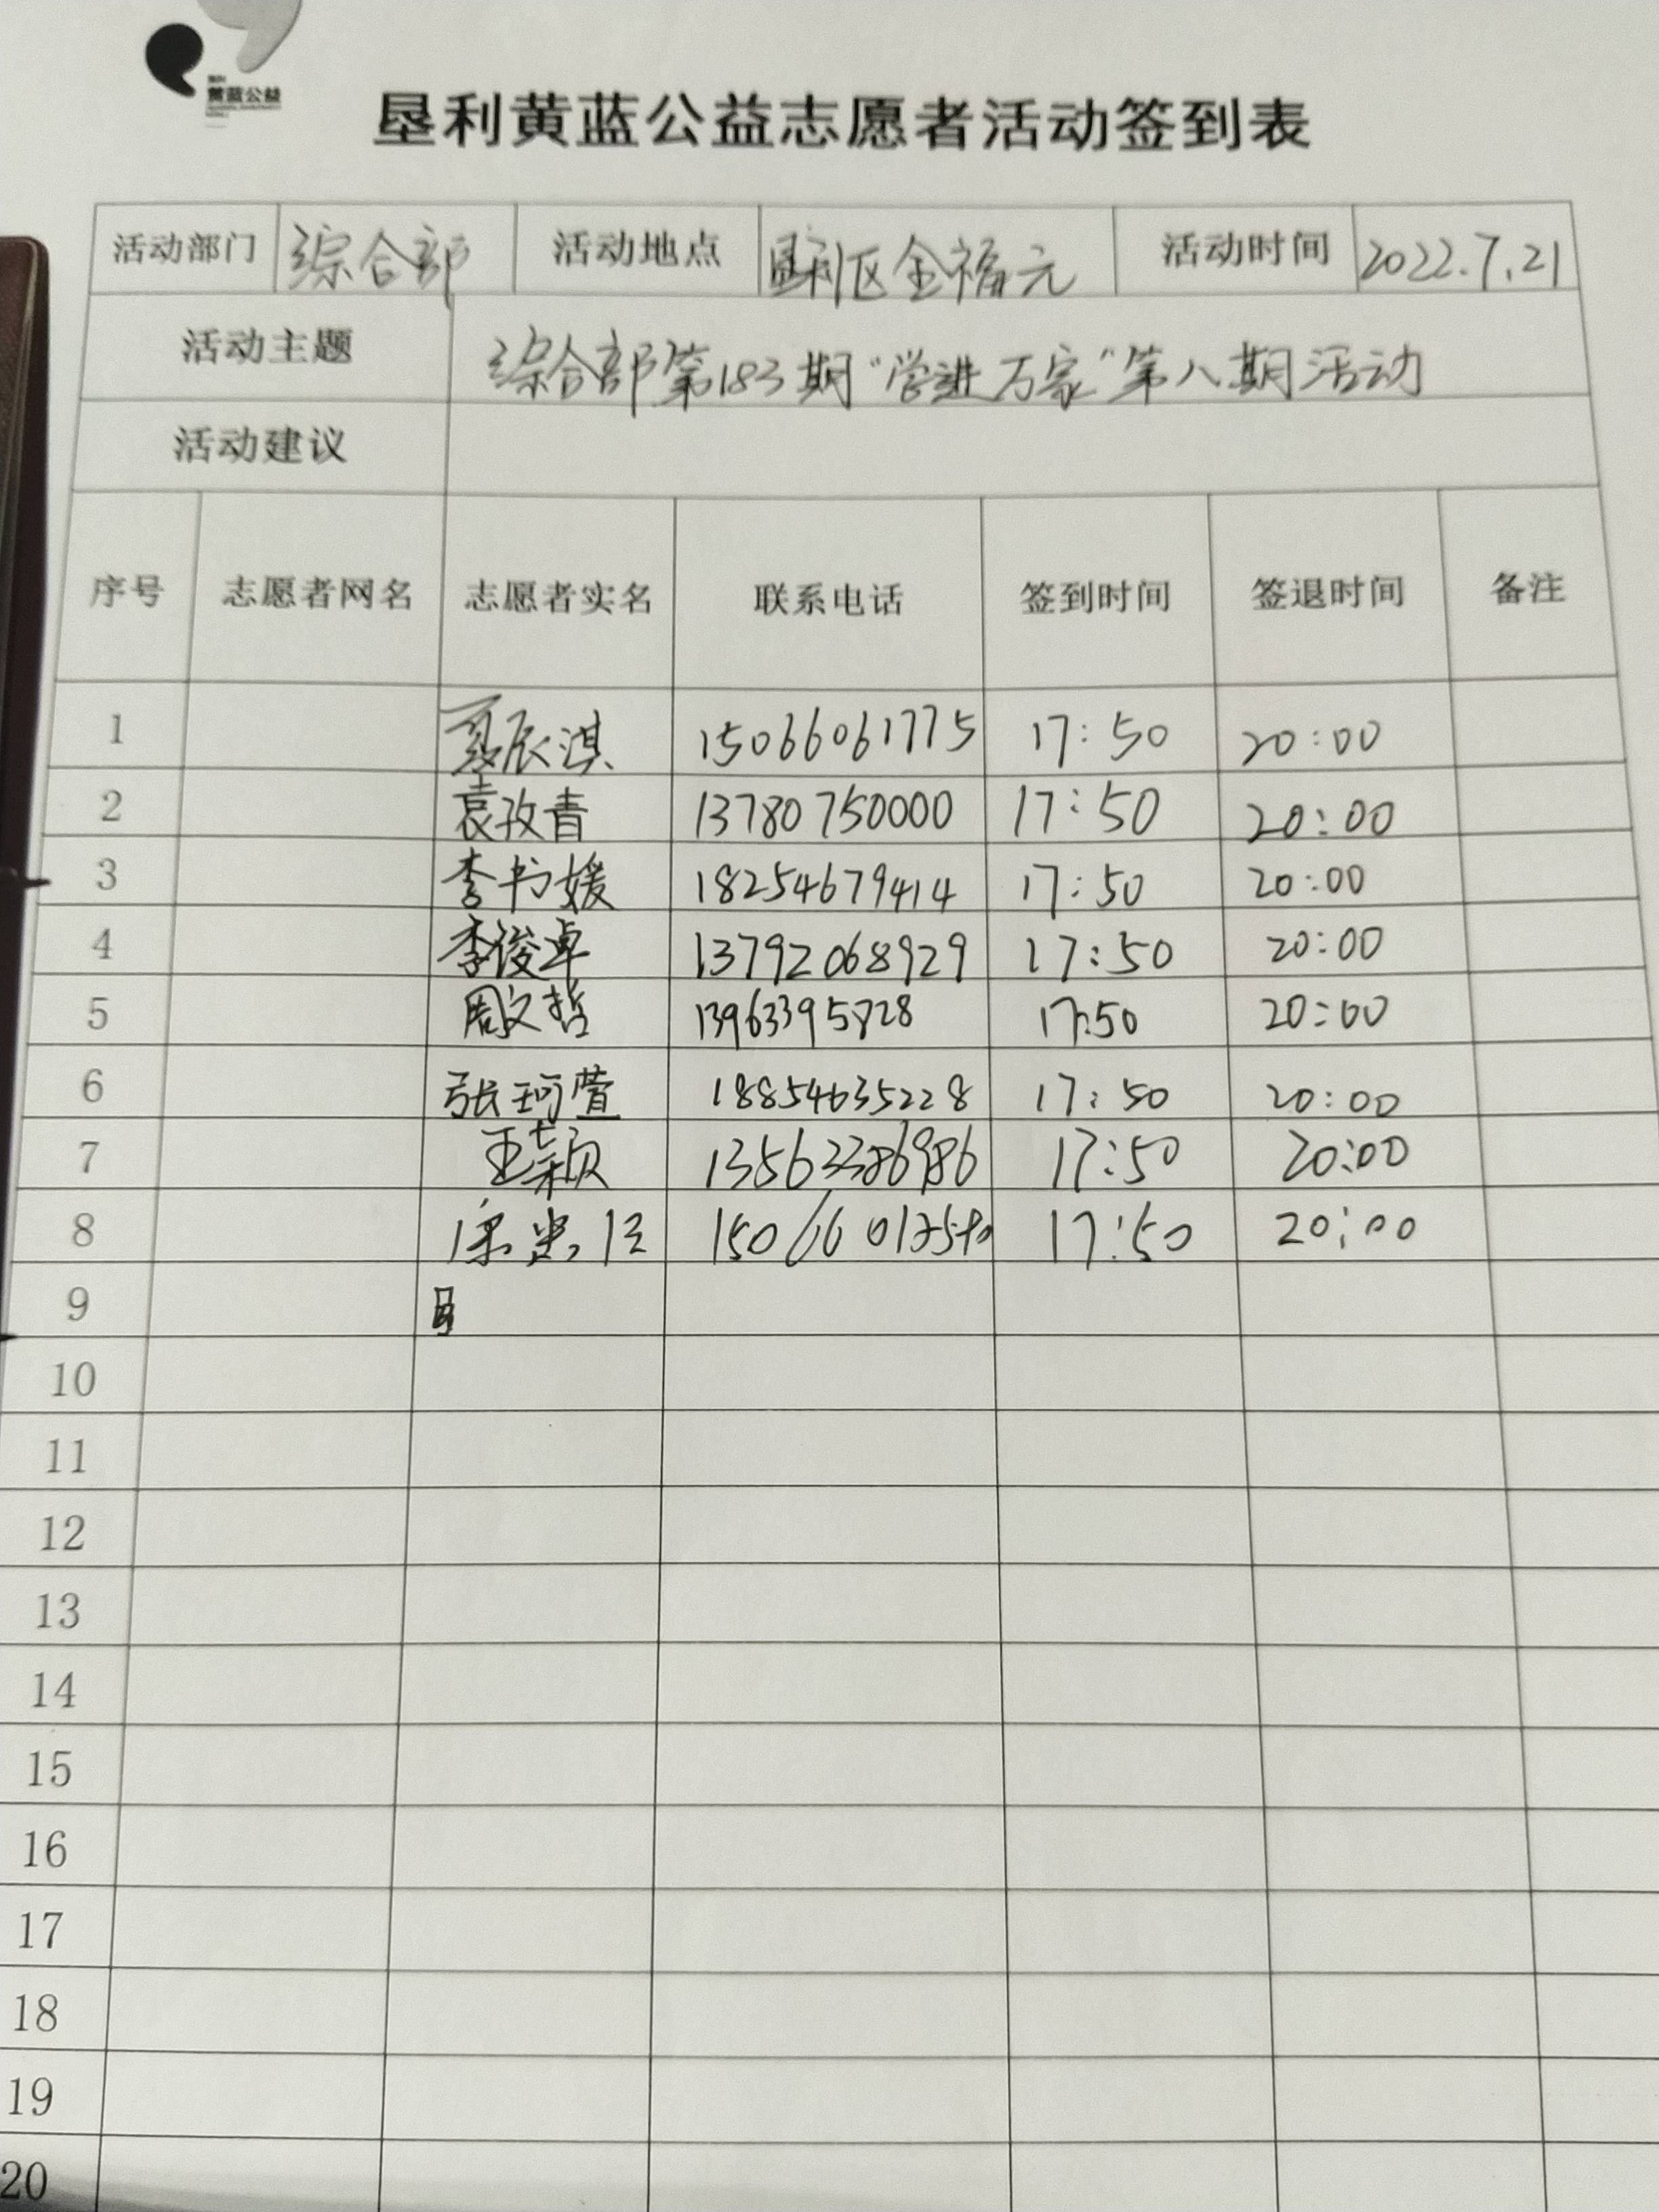 黄蓝公益
垦利黄蓝公益志愿者活动签到表
活动部门 综合部 活动地点 垦利区全福元 活动时间 2022.7.21
活动主题 综合部第183期“学进万家”第八期活动
活动建议
序号 志愿者网名 志愿者实名 联系电话 签到时间 签退时间 备注
1 辰淇 15066061775 17:50 20:00
2 袁孜青 13780750000 17:50 20:00
3 李书媛 18254679414 17:50 20:00
4 李俊卓 13792068929 17:50 20:00
5 周文哲 13963395828 17:50 20:00
6 张珂萱 18854635228 17:50 20:00
7 王颖 13563386986 17:50 20:00
8 17:50 20:00
9
10
11
12
13
14
15
16
17
18
19
20